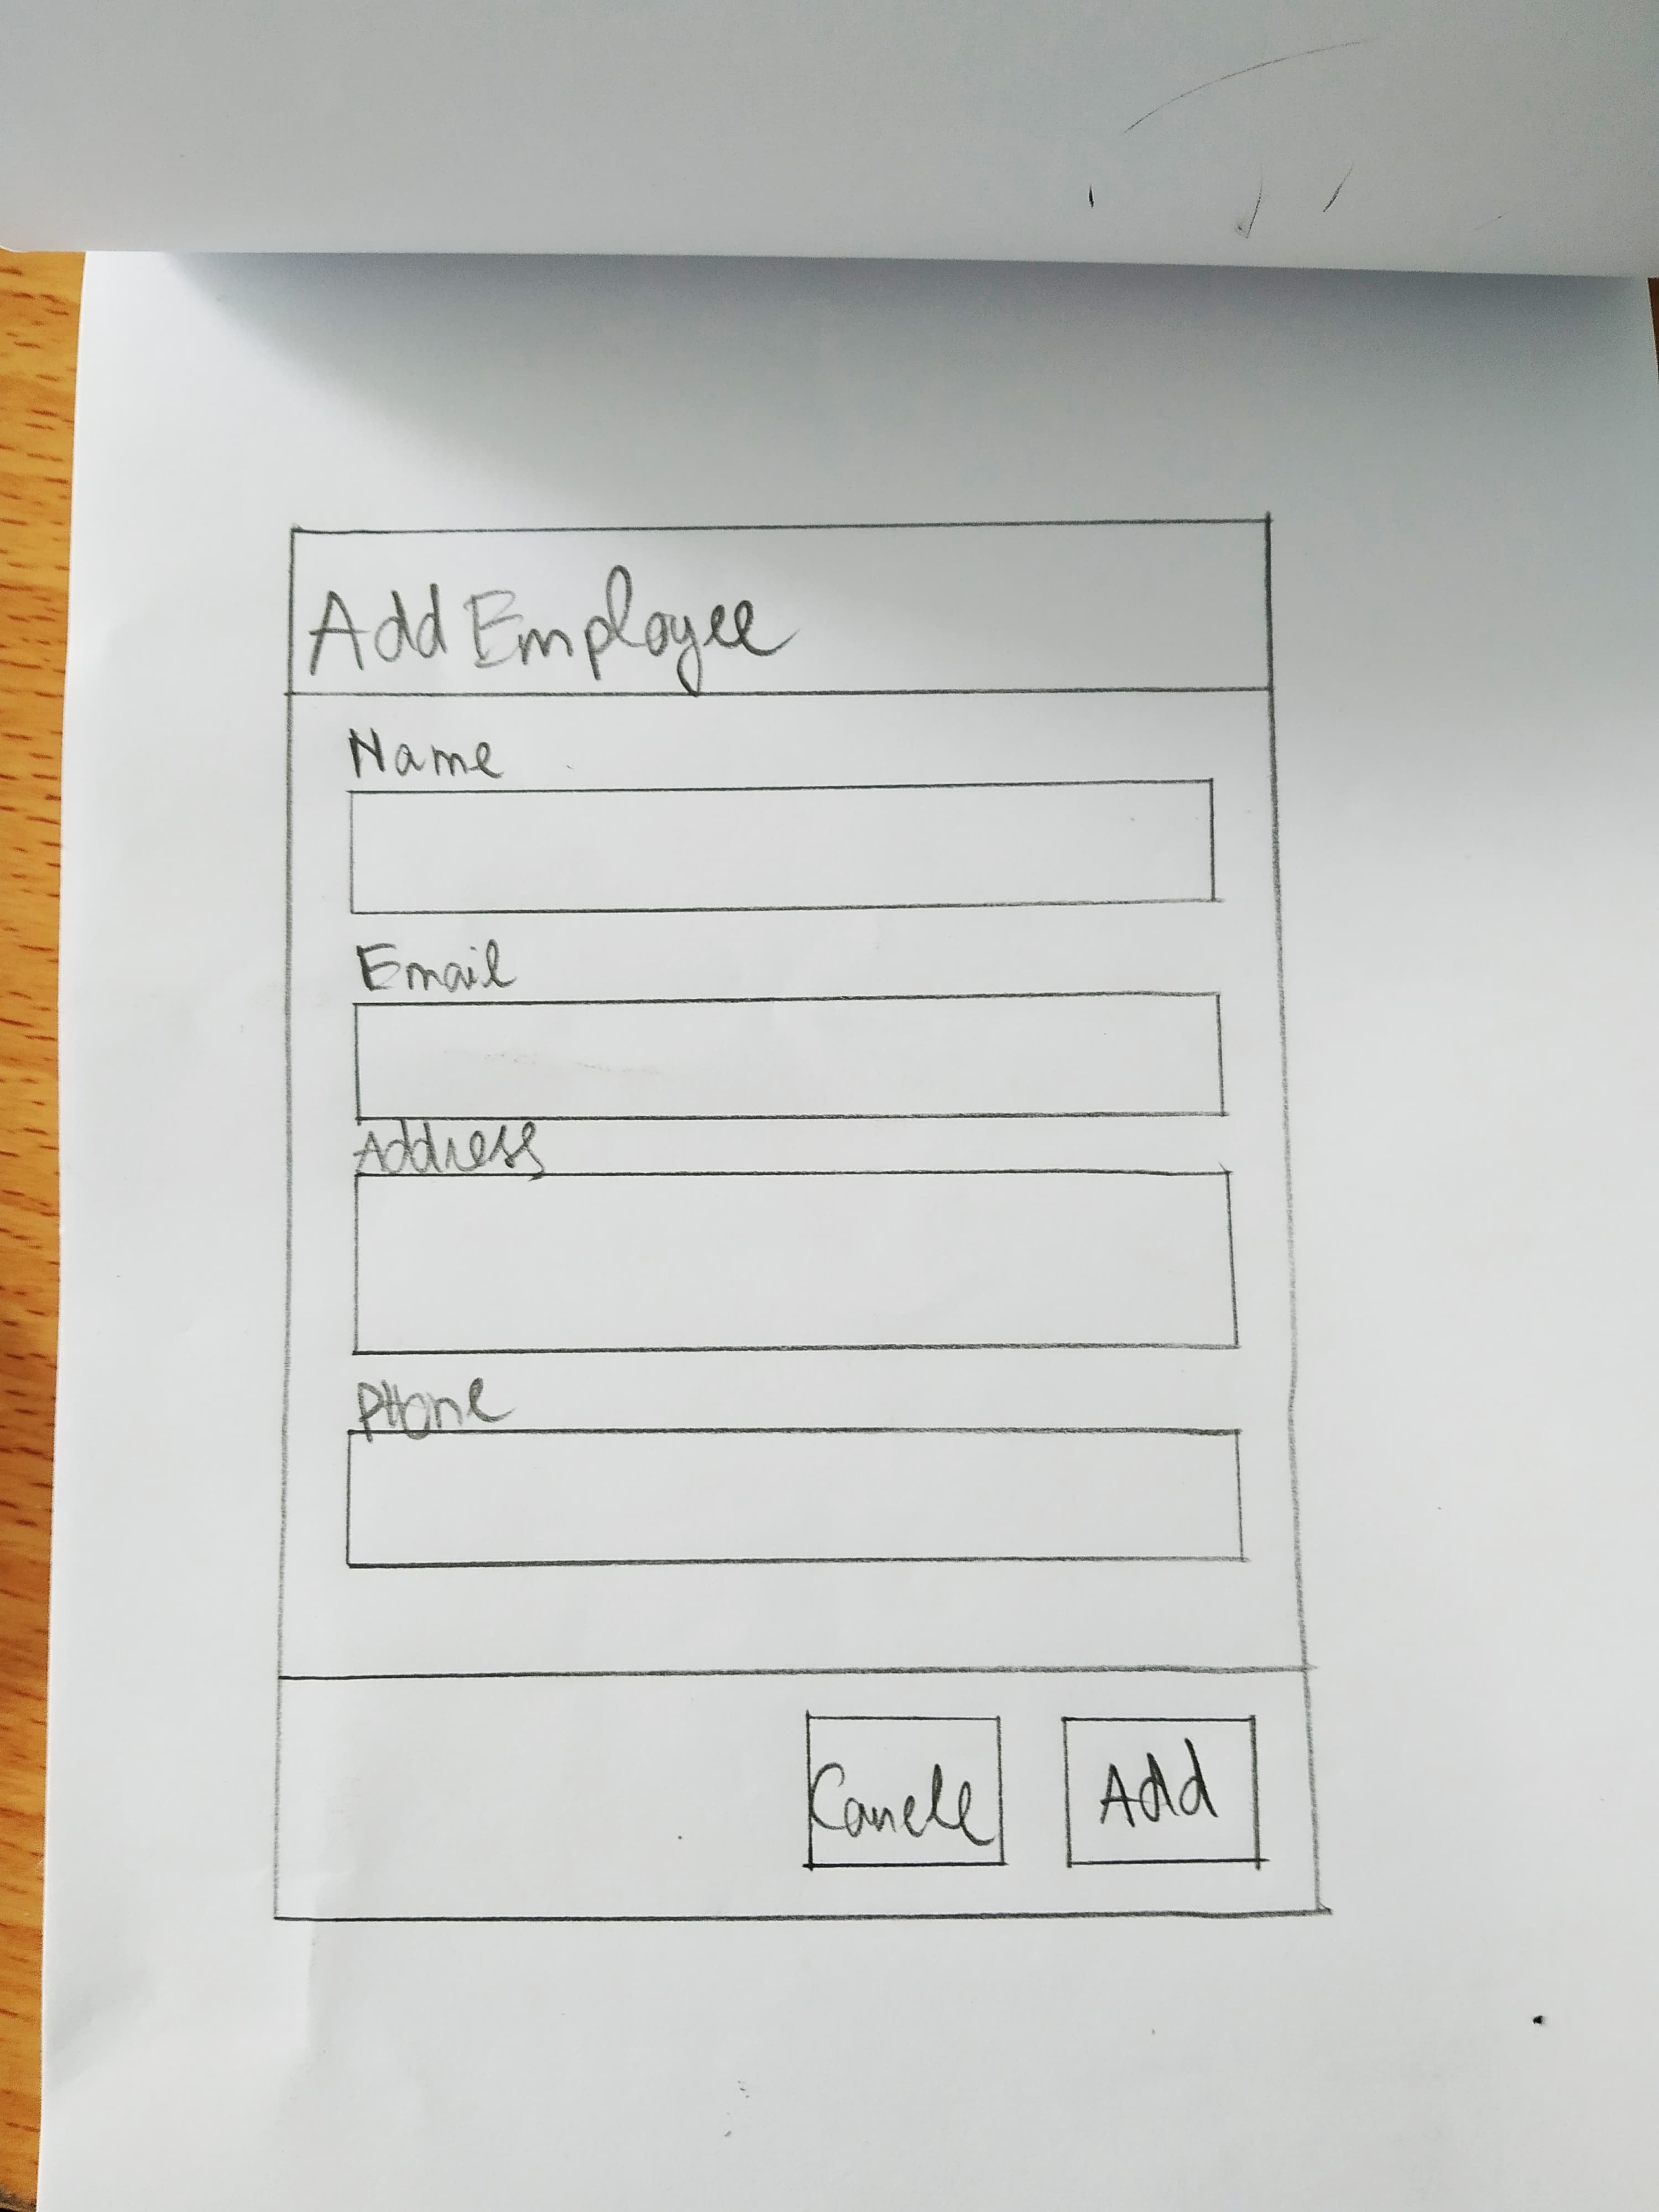 Add Employee
Name
Email
Address
PHone
Cancle
Add